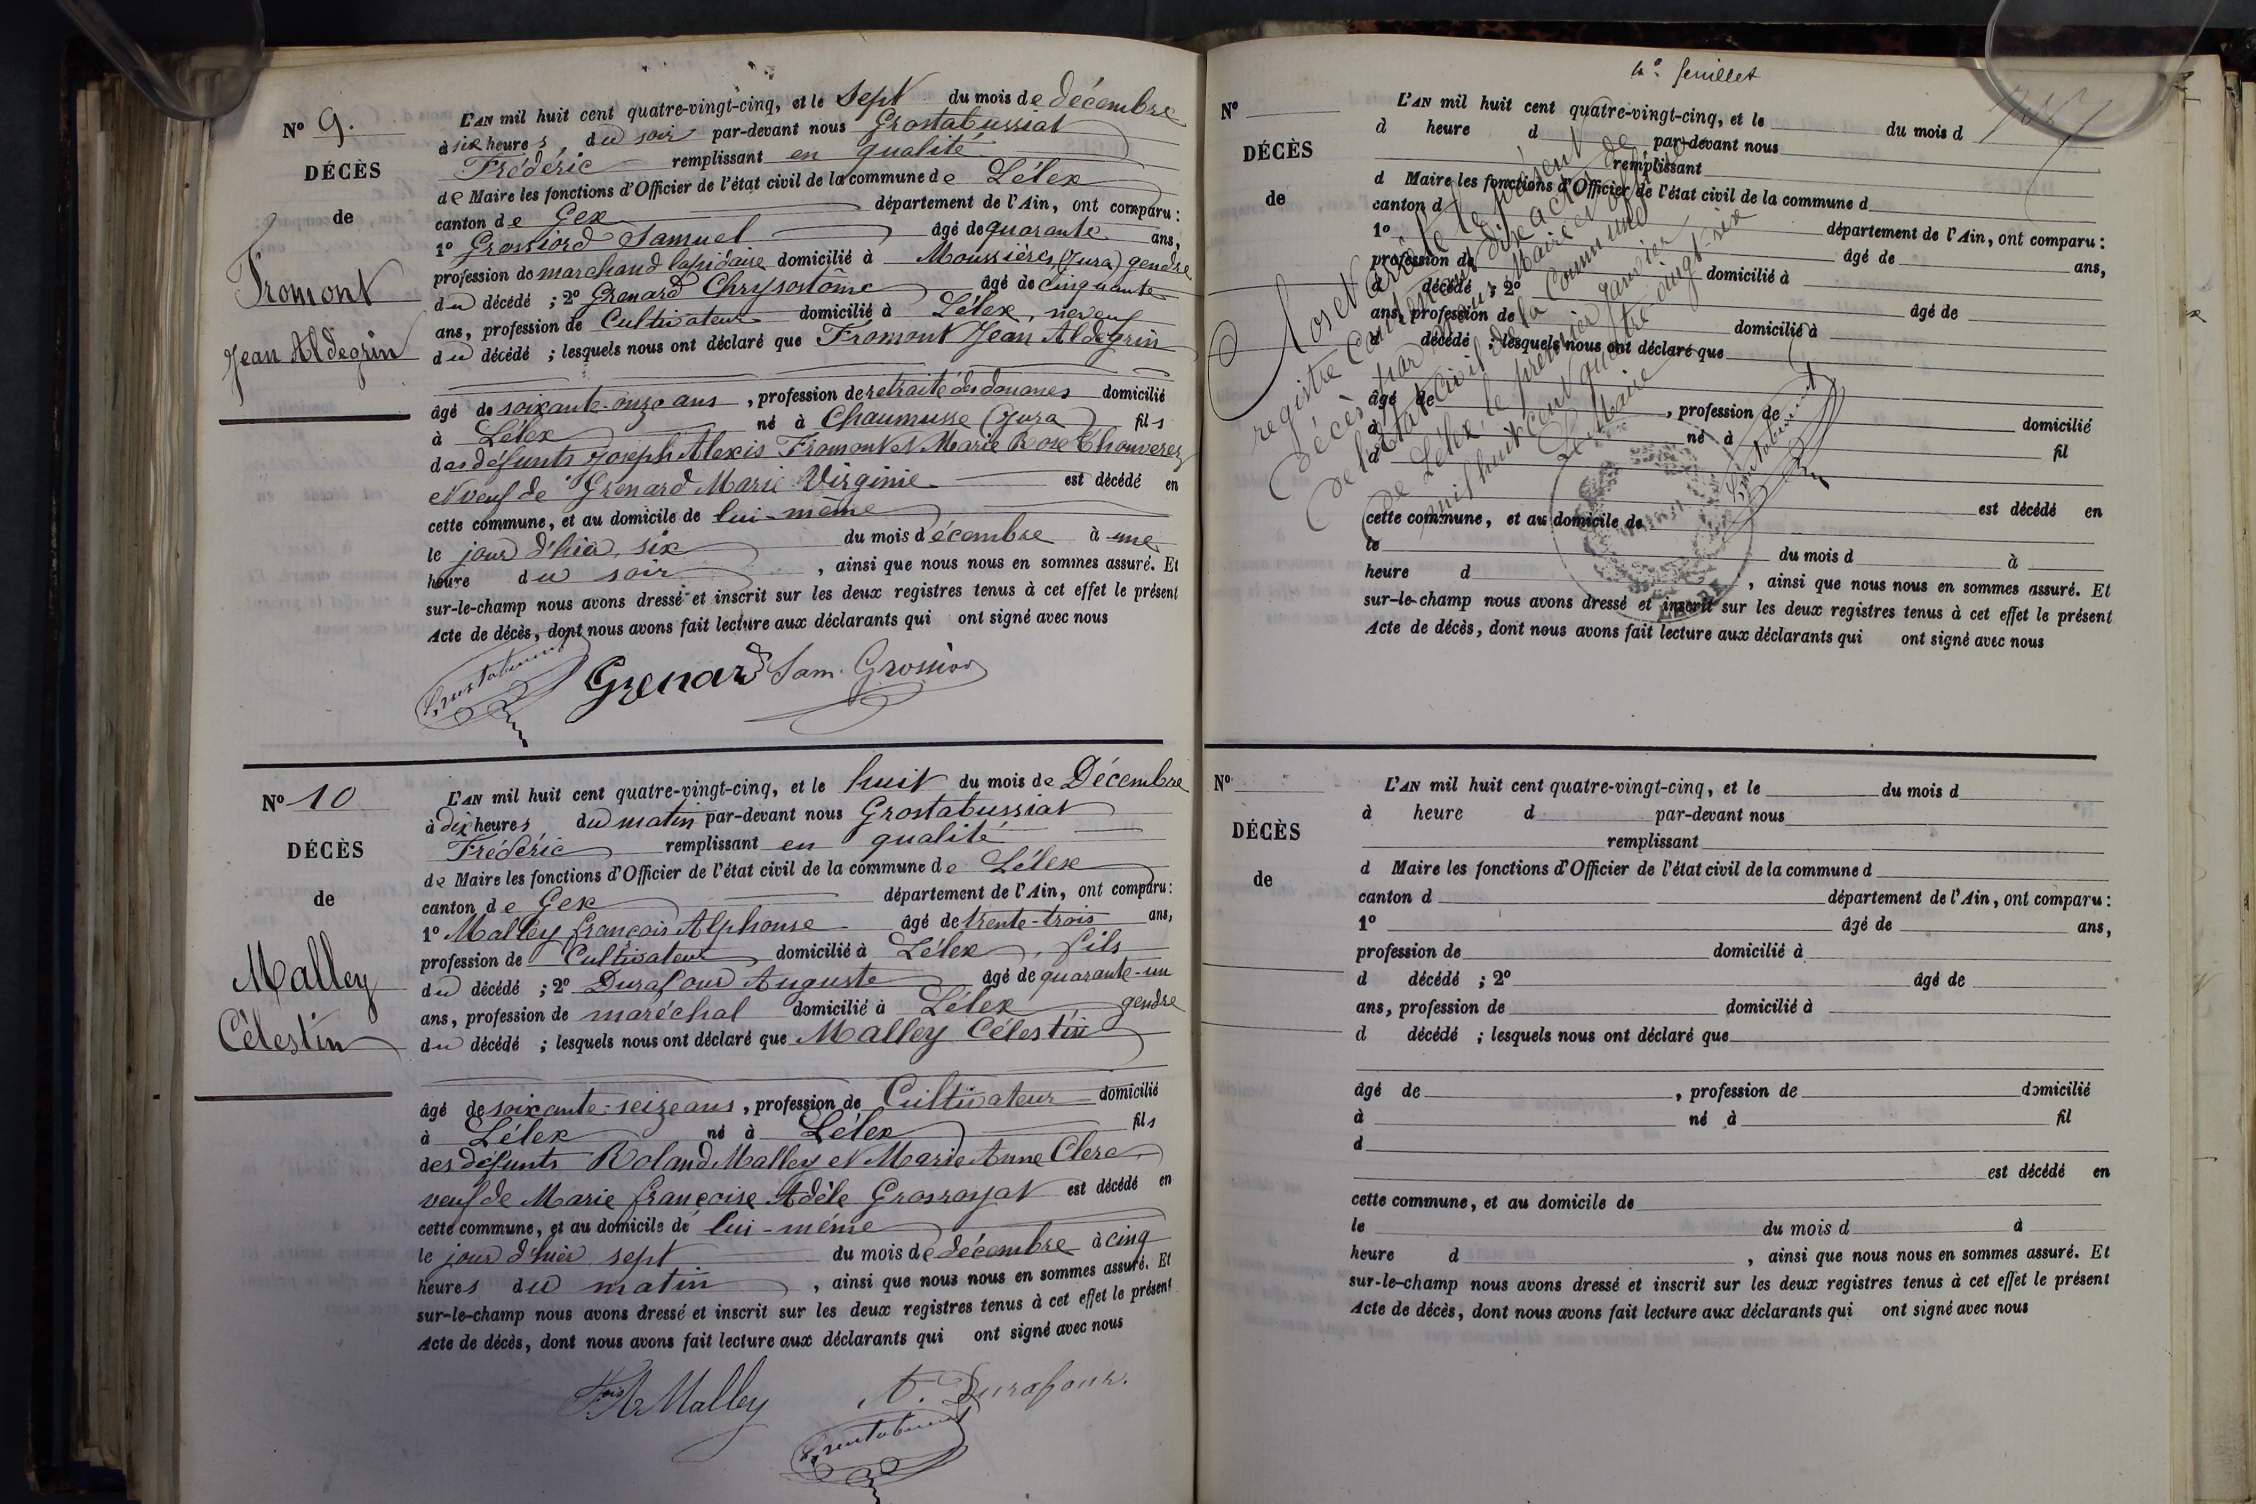 N° 9.
DÉCÈS
de
Fromont
Jean Aldegrin
L'AN mil huit cent quatre-vingt-cinq, et le sept du mois de décembre
à six heures du soir par-devant nous Grostabussiat
Frédéric remplissant en qualité
de Maire les fonctions d'Officier de l'état civil de la commune de Lélex
canton de Gex département de l'Ain, ont comparu :
1° Grossiord Samuel âgé de quarante ans,
profession de marchand lapidaire domicilié à Moussières (Jura) gendre
du décédé ; 2° Grenard Chrysostôme âgé de cinquante
ans, profession de Cultivateur domicilié à Lélex, neveu
du décédé ; lesquels nous ont déclaré que Fromont Jean Aldegrin
âgé de soixante-onze ans, profession de retraité des douanes domicilié
à Lélex né à Chaumusse (Jura) fils
des défunts Joseph Alexis Fromont et Marie Rose Thouverez
et veuf de Grenard Marie Virginie est décédé en
cette commune, et au domicile de lui-même
le jour d'hier, six du mois décembre à une
heure du soir, ainsi que nous nous en sommes assuré. Et
sur-le-champ nous avons dressé et inscrit sur les deux registres tenus à cet effet le présent
Acte de décès, dont nous avons fait lecture aux déclarants qui ont signé avec nous
Grostabussiat Grenard Sam. Grossiord
N° 10
DÉCÈS
de
Malley
Célestin
L'AN mil huit cent quatre-vingt-cinq, et le huit du mois de Décembre
à dix heures du matin par-devant nous Grostabussiat
Frédéric remplissant en qualité
de Maire les fonctions d'Officier de l'état civil de la commune de Lélex
canton de Gex département de l'Ain, ont comparu :
1° Malley françois Alphonse âgé de trente-trois ans,
profession de Cultivateur domicilié à Lélex, fils
du décédé ; 2° Durafour Auguste âgé de quarante-un
ans, profession de maréchal domicilié à Lélex gendre
du décédé ; lesquels nous ont déclaré que Malley Célestin
âgé de soixante-seize ans, profession de Cultivateur domicilié
à Lélex né à Lélex fils
des défunts Roland Malley et Marie Anne Clerc
veuf de Marie françoise Adèle Grosroyat est décédé en
cette commune, et au domicile de lui-même
le jour d'hier sept du mois de décembre à cinq
heures du matin, ainsi que nous nous en sommes assuré. Et
sur-le-champ nous avons dressé et inscrit sur les deux registres tenus à cet effet le présent
Acte de décès, dont nous avons fait lecture aux déclarants qui ont signé avec nous
Fois A Malley A. Durafour.
Grostabussiat
4e. feuillet
N°
DÉCÈS
de
L'AN mil huit cent quatre-vingt-cinq, et le du mois d
à heure d par-devant nous
remplissant
d Maire les fonctions d'Officier de l'état civil de la commune d
canton d département de l'Ain, ont comparu :
1° âgé de ans,
profession de domicilié à
d décédé ; 2° âgé de
ans, profession de domicilié à
d décédé ; lesquels nous ont déclaré que
âgé de , profession de domicilié
à né à fil
d
est décédé en
cette commune, et au domicile de
le du mois d à
heure d , ainsi que nous nous en sommes assuré. Et
sur-le-champ nous avons dressé et inscrit sur les deux registres tenus à cet effet le présent
Acte de décès, dont nous avons fait lecture aux déclarants qui ont signé avec nous
Clos et Arrêté le présent
registre contenant dix actes de
décès par nous Maire et officier
de l'état civil de la Commune
de Lélex, le premier Janvier
mil huit cent quatre vingt-six
Le Maire
Grostabussiat
N°
DÉCÈS
de
L'AN mil huit cent quatre-vingt-cinq, et le du mois d
à heure d par-devant nous
remplissant
d Maire les fonctions d'Officier de l'état civil de la commune d
canton d département de l'Ain, ont comparu :
1° âgé de ans,
profession de domicilié à
d décédé ; 2° âgé de
ans, profession de domicilié à
d décédé ; lesquels nous ont déclaré que
âgé de , profession de domicilié
à né à fil
d
est décédé en
cette commune, et au domicile de
le du mois d à
heure d , ainsi que nous nous en sommes assuré. Et
sur-le-champ nous avons dressé et inscrit sur les deux registres tenus à cet effet le présent
Acte de décès, dont nous avons fait lecture aux déclarants qui ont signé avec nous